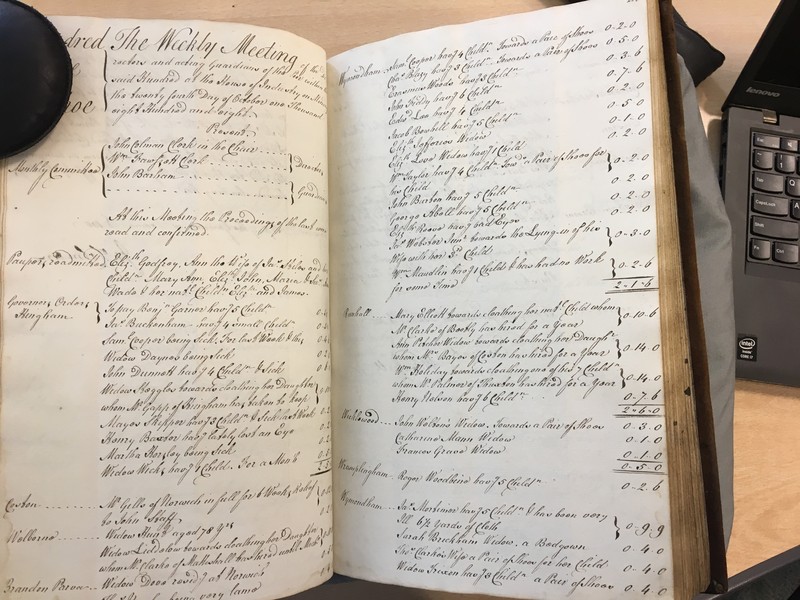 dred The Weekly Meeting of the
rectors and acting Guardians of the
said Hundred at the House of Industry
the twenty fourth Day of October one Thousand
eight Hundred and eight.
Present
John Colman Clerk in the Chair
Monthly Committee
John Barham
At this Meeting the Proceedings of the last were
read and confirmed
Paupers readmitted Elizth Godfrey, Ann the Wife of Jas Stiles and her
Childn Mary Ann, Elizth John, Maria &
Wade & her Childn Eliz and James
Governors Orders
Hingham
To pay Benjn Garner havg 5 Childn
Jas Buckenham havg 4 small Childn
Sam Cooper being Sick. For last Week & this
Widow Daynes being Sick
John Dunnett havg 4 Childn & Sick
Widow Hoggles towards cloathing her Daughter
whom Mr Gapp of Hingham has taken to keep
Mayes Skipper havg 3 Childn & Sick last Week
Henry Baxter hath lately lost an Eye
Martha Hersley being Sick
Widow Week havg 7 Childn For a Month
Coston Mr Gells of Norwich in full for 6 Weeks Relief
to John Staff
Welborne Widow Hunt aged 78 Yrs
Widow Liddelow towards cloathing her Daughter
whom Mr Clarke of Mattishall has hired until Mich
Brandon Parva Widow Drew resid at Norwich
being very lame
Wymondham Saml Cooper havg 4 Childn Towards a Pair of Shoes 0-2-0
Chas Bary havg 3 Childn Towards a Pair of Shoes 0-5-0
Erasmus Woods havg 3 Childn 0-3-6
John Fiddy havg 6 Childn 0-7-6
Edwd Lan havg 4 Childn 0-2-0
Jacob Bowhill havg 5 Childn 0-5-0
Elizth Jefferies Widow 0-1-0
Elizth Love Widow havg 1 Child 0-2-0
Wm Taylor havg 4 Childn Towds a Pair of Shoes for
his Child 0-2-0
John Burton havg 5 Childn 0-2-0
George Abell havg 5 Childn 0-2-0
Elizth Reeve havg bad Eyes 0-2-0
Jas Webster Junr towards the Lying in of his
Wife with her 3d Child 0-3-0
Wm Maudlin havg 1 Child & has had no Work
for some Time 0-2-6
2-1-6
Runhall Mary Ellett towards cloathing her Child whom
Mr Clarke of Bently has hired for a Year 0-10-6
Ann Pitcher Widow towards cloathing her Daughr
whom Mr Bayes of Coston has hired for a Year 0-14-0
Wm Holiday towards cloathing one of his 7 Childn
whom Mr Palmer of Thuxton has hired for a Year 0-14-0
Henry Nelson havg 6 Childn 0-7-6
2-6-0
Wicklewood John Wilton's Widow. Towards a Pair of Shoes 0-3-0
Catharine Mann Widow 0-1-0
Frances Graves Widow 0-1-0
0-5-0
Wramplingham Roger Woodbine havg 5 Childn 0-2-6
Wymondham Jas Mortimer havg 5 Childn & has been very
Ill 6½ Yards of Cloth 0-9-9
Sarah Buckham Widow, a Bedgown 0-4-0
Jas Clarke's Wife a Pair of Shoes for her Child 0-4-0
Widow Frixen havg 3 Childn a Pair of Shoes 0-4-0
lenovo
CapsLock
Shift
Fn
Ctrl
intel